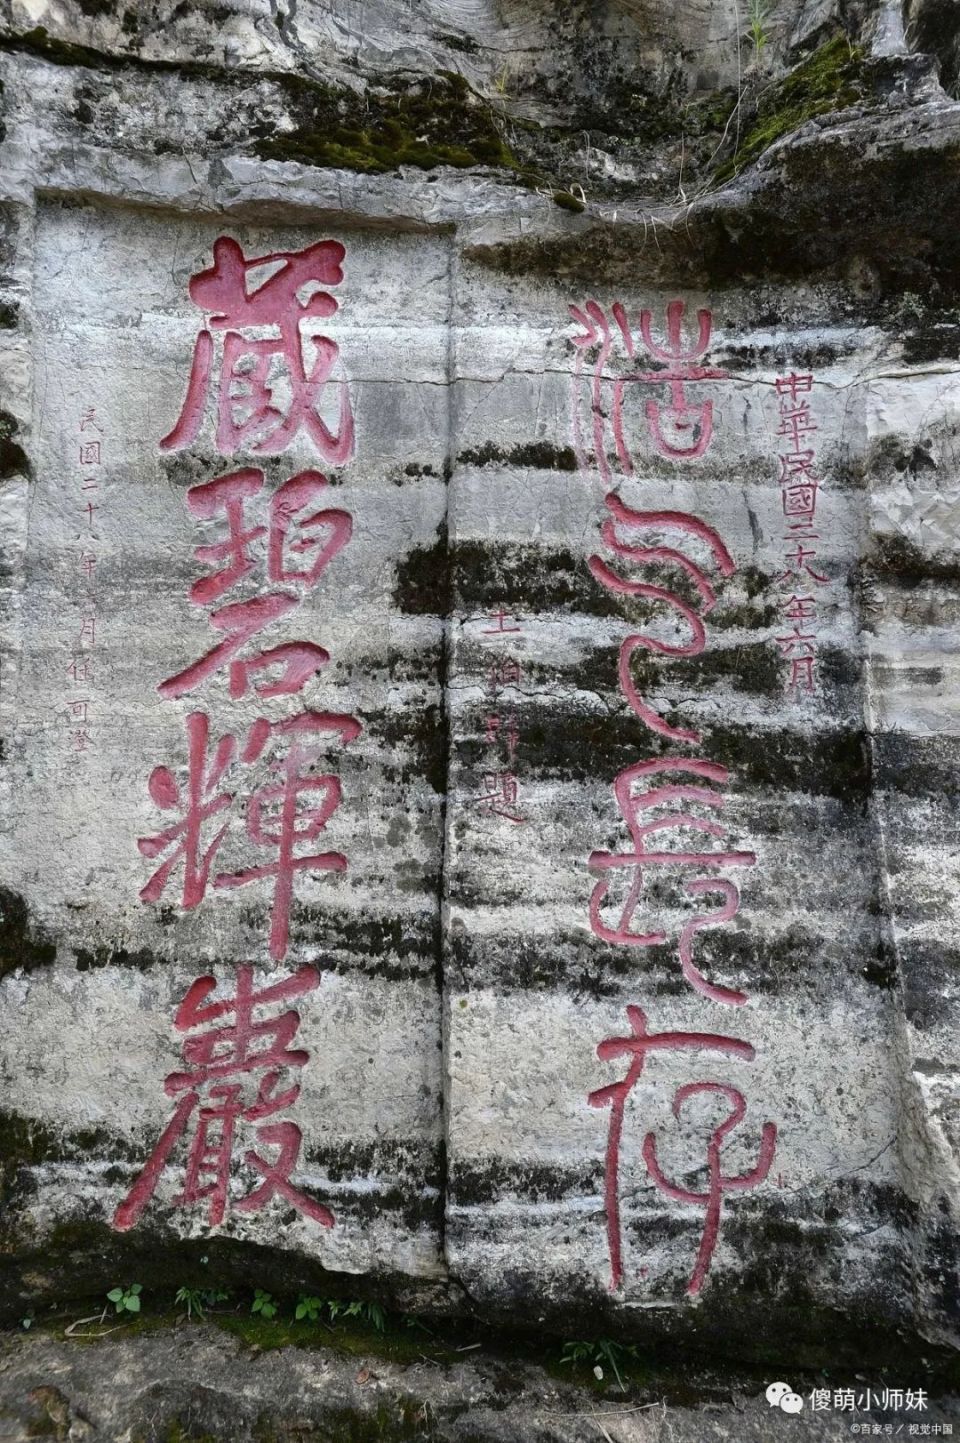 中華民國二十八年六月
浩气長存
王伯群題
藏碧輝巖
民國二十八年月任可澄
傻萌小师妹
©百家号／视觉中国